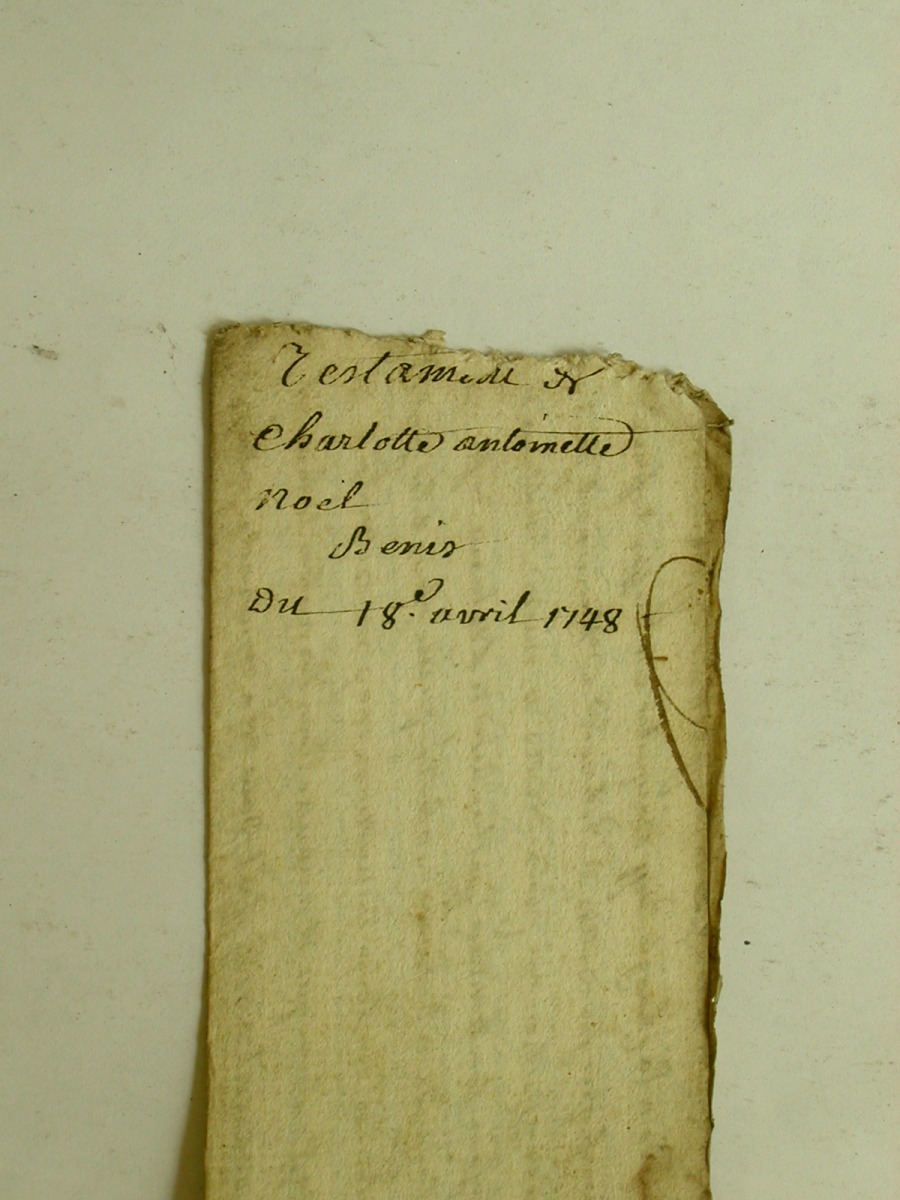 Testament de
Charlotte antoinette
Noël
Benis
Du 18e. avril 1748